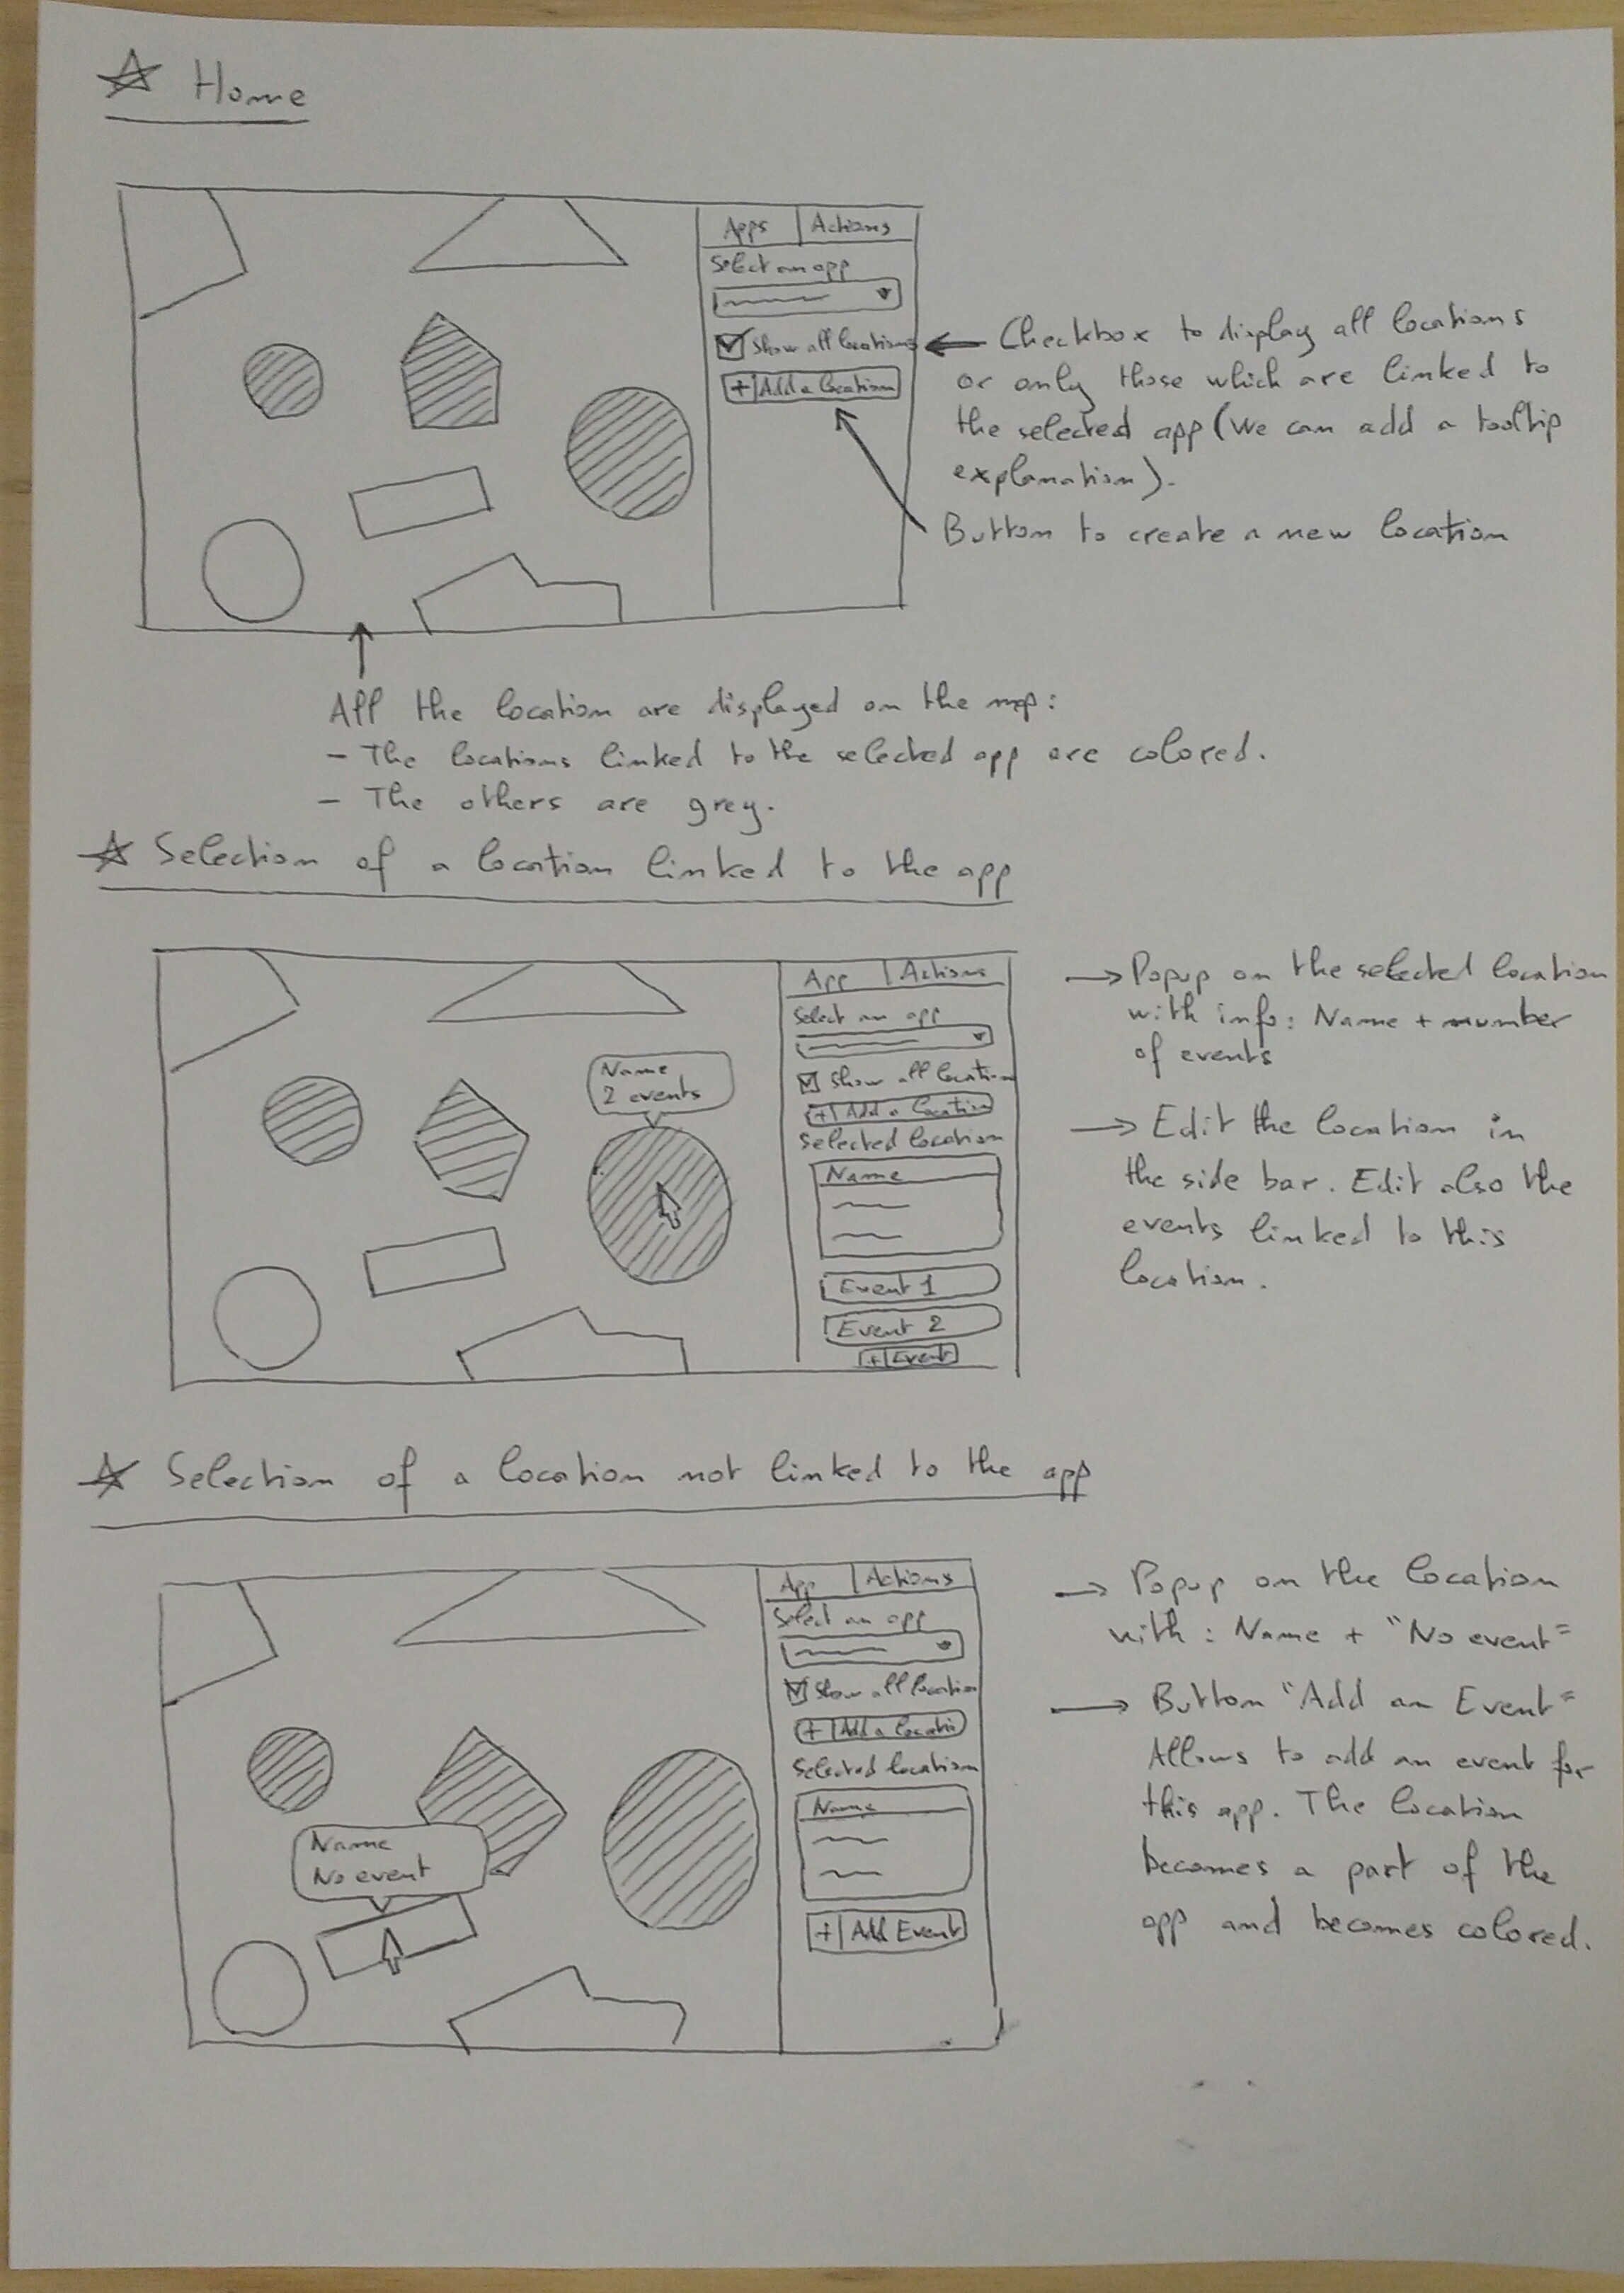 Home
Apps Actions
Select an app
Show all locations
+ Add a location
Checkbox to display all locations
or only those which are linked to
the selected app (We can add a tooltip
explanation).
Button to create a new location
All the location are displayed on the map:
- The locations linked to the selected app are colored.
- The others are grey.
Selection of a location linked to the app
App Actions
Select an app
Show all location
+ Add a location
Selected location
Name
Event 1
Event 2
+ Event
Name
2 events
→ Popup on the selected location
with info: Name + number
of events
→ Edit the location in
the side bar. Edit also the
events linked to this
location.
Selection of a location not linked to the app
App Actions
Select an app
Show all location
+ Add a locatio
Selected location
Name
+ Add Event
Name
No event
→ Popup on the location
with: Name + "No event"
→ Button "Add an Event"
Allows to add an event for
this app. The location
becomes a part of the
app and becomes colored.